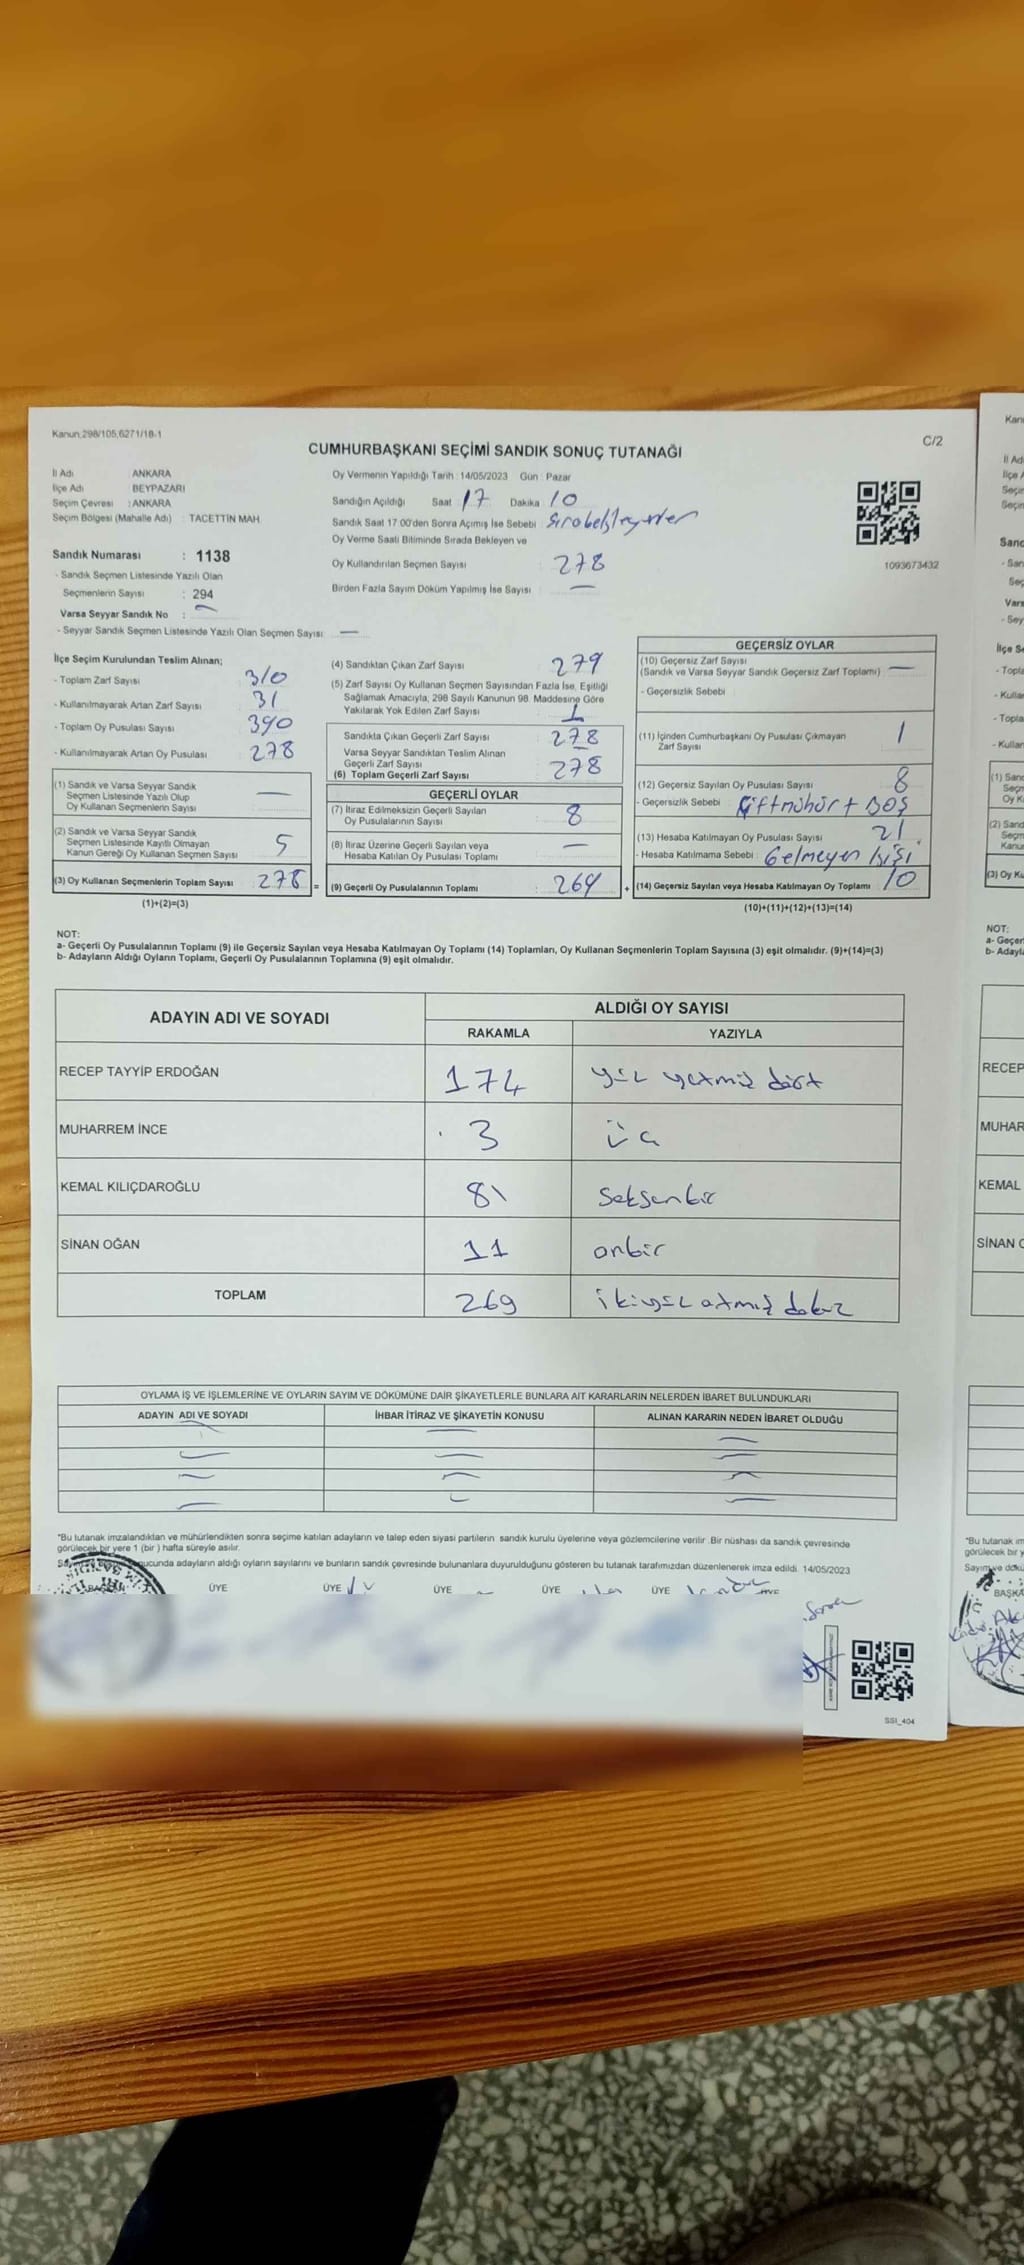 Kanun;298/105,6271/18-1
C/2
CUMHURBAŞKANI SEÇİMİ SANDIK SONUÇ TUTANAĞI
İl Adı ANKARA
İlçe Adı BEYPAZARI
Seçim Çevresi : ANKARA
Seçim Bölgesi (Mahalle Adı) : TACETTİN MAH.
Sandık Numarası : 1138
- Sandık Seçmen Listesinde Yazılı Olan
Seçmenlerin Sayısı : 294
Varsa Seyyar Sandık No : —
- Seyyar Sandık Seçmen Listesinde Yazılı Olan Seçmen Sayısı: —
Oy Vermenin Yapıldığı Tarih : 14/05/2023 Gün : Pazar
Sandığın Açıldığı Saat 17 Dakika 10
Sandık Saat 17:00'den Sonra Açımış İse Sebebi :
Oy Verme Saati Bitiminde Sırada Bekleyen ve
Oy Kullandırılan Seçmen Sayısı : 278
Birden Fazla Sayım Döküm Yapılmış İse Sayısı : —
1093673432
İlçe Seçim Kurulundan Teslim Alınan;
- Toplam Zarf Sayısı 310
- Kullanılmayarak Artan Zarf Sayısı 31
- Toplam Oy Pusulası Sayısı 390
- Kullanılmayarak Artan Oy Pusulası 278
(1) Sandık ve Varsa Seyyar Sandık
Seçmen Listesinde Yazılı Olup
Oy Kullanan Seçmenlerin Sayısı —
(2) Sandık ve Varsa Seyyar Sandık
Seçmen Listesinde Kayıtlı Olmayan
Kanun Gereği Oy Kullanan Seçmen Sayısı 5
(3) Oy Kullanan Seçmenlerin Toplam Sayısı 278 =
(1)+(2)=(3)
(4) Sandıktan Çıkan Zarf Sayısı 279
(5) Zarf Sayısı Oy Kullanan Seçmen Sayısından Fazla İse, Eşitliği
Sağlamak Amacıyla, 298 Sayılı Kanunun 98. Maddesine Göre
Yakılarak Yok Edilen Zarf Sayısı 1
Sandıkta Çıkan Geçerli Zarf Sayısı : 278
Varsa Seyyar Sandıktan Teslim Alınan
Geçerli Zarf Sayısı
(6) Toplam Geçerli Zarf Sayısı : 278
GEÇERLİ OYLAR
(7) İtiraz Edilmeksizin Geçerli Sayılan
Oy Pusulalarının Sayısı : 8
(8) İtiraz Üzerine Geçerli Sayılan veya
Hesaba Katılan Oy Pusulası Toplamı : —
(9) Geçerli Oy Pusulalarının Toplamı : 264 +
GEÇERSİZ OYLAR
(10) Geçersiz Zarf Sayısı
(Sandık ve Varsa Seyyar Sandık Geçersiz Zarf Toplamı) : —
- Geçersizlik Sebebi
(11) İçinden Cumhurbaşkanı Oy Pusulası Çıkmayan
Zarf Sayısı 1
(12) Geçersiz Sayılan Oy Pusulası Sayısı 8
- Geçersizlik Sebebi : Çift mühür + BOŞ
(13) Hesaba Katılmayan Oy Pusulası Sayısı 21
- Hesaba Katılmama Sebebi : Gelmeyen kişi
(14) Geçersiz Sayılan veya Hesaba Katılmayan Oy Toplamı 10
(10)+(11)+(12)+(13)=(14)
NOT:
a- Geçerli Oy Pusulalarının Toplamı (9) ile Geçersiz Sayılan veya Hesaba Katılmayan Oy Toplamı (14) Toplamları, Oy Kullanan Seçmenlerin Toplam Sayısına (3) eşit olmalıdır. (9)+(14)=(3)
b- Adayların Aldığı Oyların Toplamı, Geçerli Oy Pusulalarının Toplamına (9) eşit olmalıdır.
ADAYIN ADI VE SOYADI ALDIĞI OY SAYISI
RAKAMLA YAZIYLA
RECEP TAYYİP ERDOĞAN 174 yüz yetmiş dört
MUHARREM İNCE 3 üç
KEMAL KILIÇDAROĞLU 81 seksenbir
SİNAN OĞAN 11 onbir
TOPLAM 269 ikiyüz atmış dokuz
OYLAMA İŞ VE İŞLEMLERİNE VE OYLARIN SAYIM VE DÖKÜMÜNE DAİR ŞİKAYETLERLE BUNLARA AİT KARARLARIN NELERDEN İBARET BULUNDUKLARI
ADAYIN ADI VE SOYADI İHBAR İTİRAZ VE ŞİKAYETİN KONUSU ALINAN KARARIN NEDEN İBARET OLDUĞU
*Bu tutanak imzalandıktan ve mühürlendikten sonra seçime katılan adayların ve talep eden siyasi partilerin sandık kurulu üyelerine veya gözlemcilerine verilir .Bir nüshası da sandık çevresinde
görülecek bir yere 1 (bir ) hafta süreyle asılır.
adayların aldığı oyların sayılarını ve bunların sandık çevresinde bulunanlara duyurulduğunu gösteren bu tutanak tarafımızdan düzenlenerek imza edildi. 14/05/2023
ÜYE ÜYE ÜYE ÜYE ÜYE ÜYE
SSI_404
Kanu
İl Ad
İlçe A
Seçim
Seçim
Sand
NOT:
a- Geçer
b- Adayla
RECEP
MUHAR
KEMAL
SİNAN O
*Bu tutanak im
görülecek bir y
Sayım ve dökü
BAŞKA